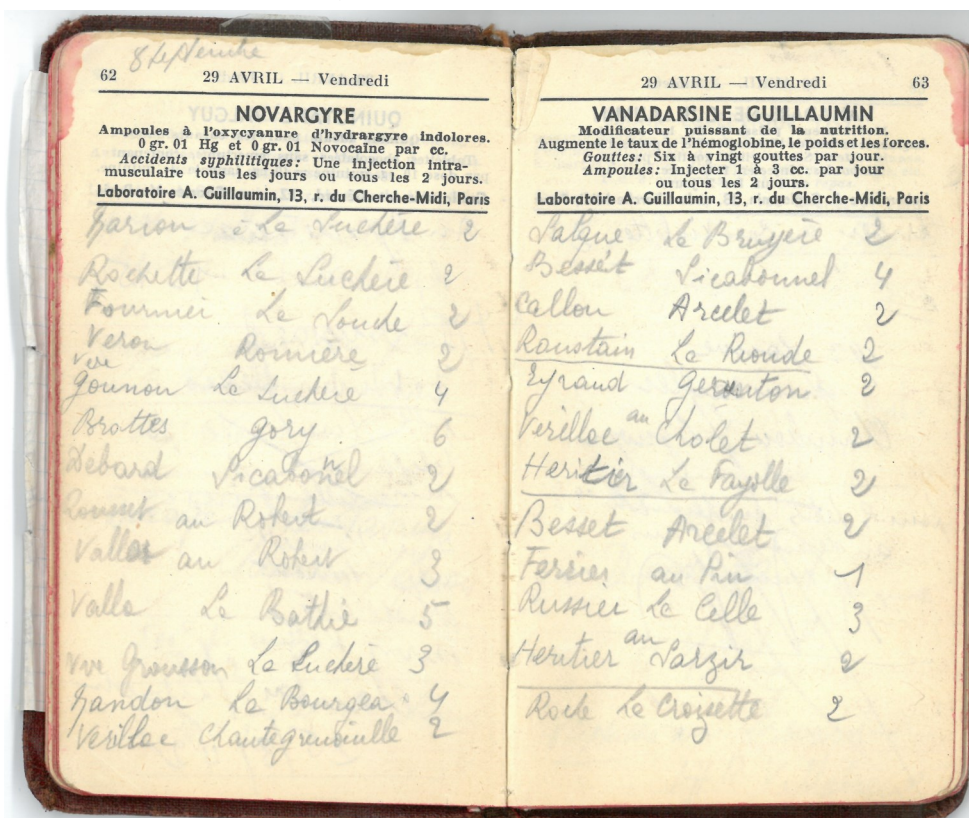 8 Septembre
62 29 AVRIL — Vendredi
NOVARGYRE
Ampoules à l'oxycyanure d'hydrargyre indolores.
0 gr. 01 Hg et 0 gr. 01 Novocaïne par cc.
Accidents syphilitiques: Une injection intra-
musculaire tous les jours ou tous les 2 jours.
Laboratoire A. Guillaumin, 13, r. du Cherche-Midi, Paris
à La Suchère 2
Rochette La Suchère 2
Fournier La Soude 2
Veron Romière 2
Vve
Gounon La Suchère 4
Brottes Gory 6
Debard Sicabonel 2
Rousset au Robert 2
Vallos au Robert 3
Valla La Bathie 5
Vve Grousson La Suchère 3
La Bourgea 4
Verilloc Chantegrenouille 2
29 AVRIL — Vendredi 63
VANADARSINE GUILLAUMIN
Modificateur puissant de la nutrition.
Augmente le taux de l'hémoglobine, le poids et les forces.
Gouttes: Six à vingt gouttes par jour.
Ampoules: Injecter 1 à 3 cc. par jour
ou tous les 2 jours.
Laboratoire A. Guillaumin, 13, r. du Cherche-Midi, Paris
Salgue La Bruyère 2
Besset Sicabonnel 4
Callon Arcelet 2
Roustain La Rionde 2
Eyraud 2
Verilloc au Cholet 2
Heritier La Fayolle 2
Besset Arcelet 2
Ferrier au Pin 1
Russier La Celle 3
Heritier au Sarzir 2
Roche La Croizette 2